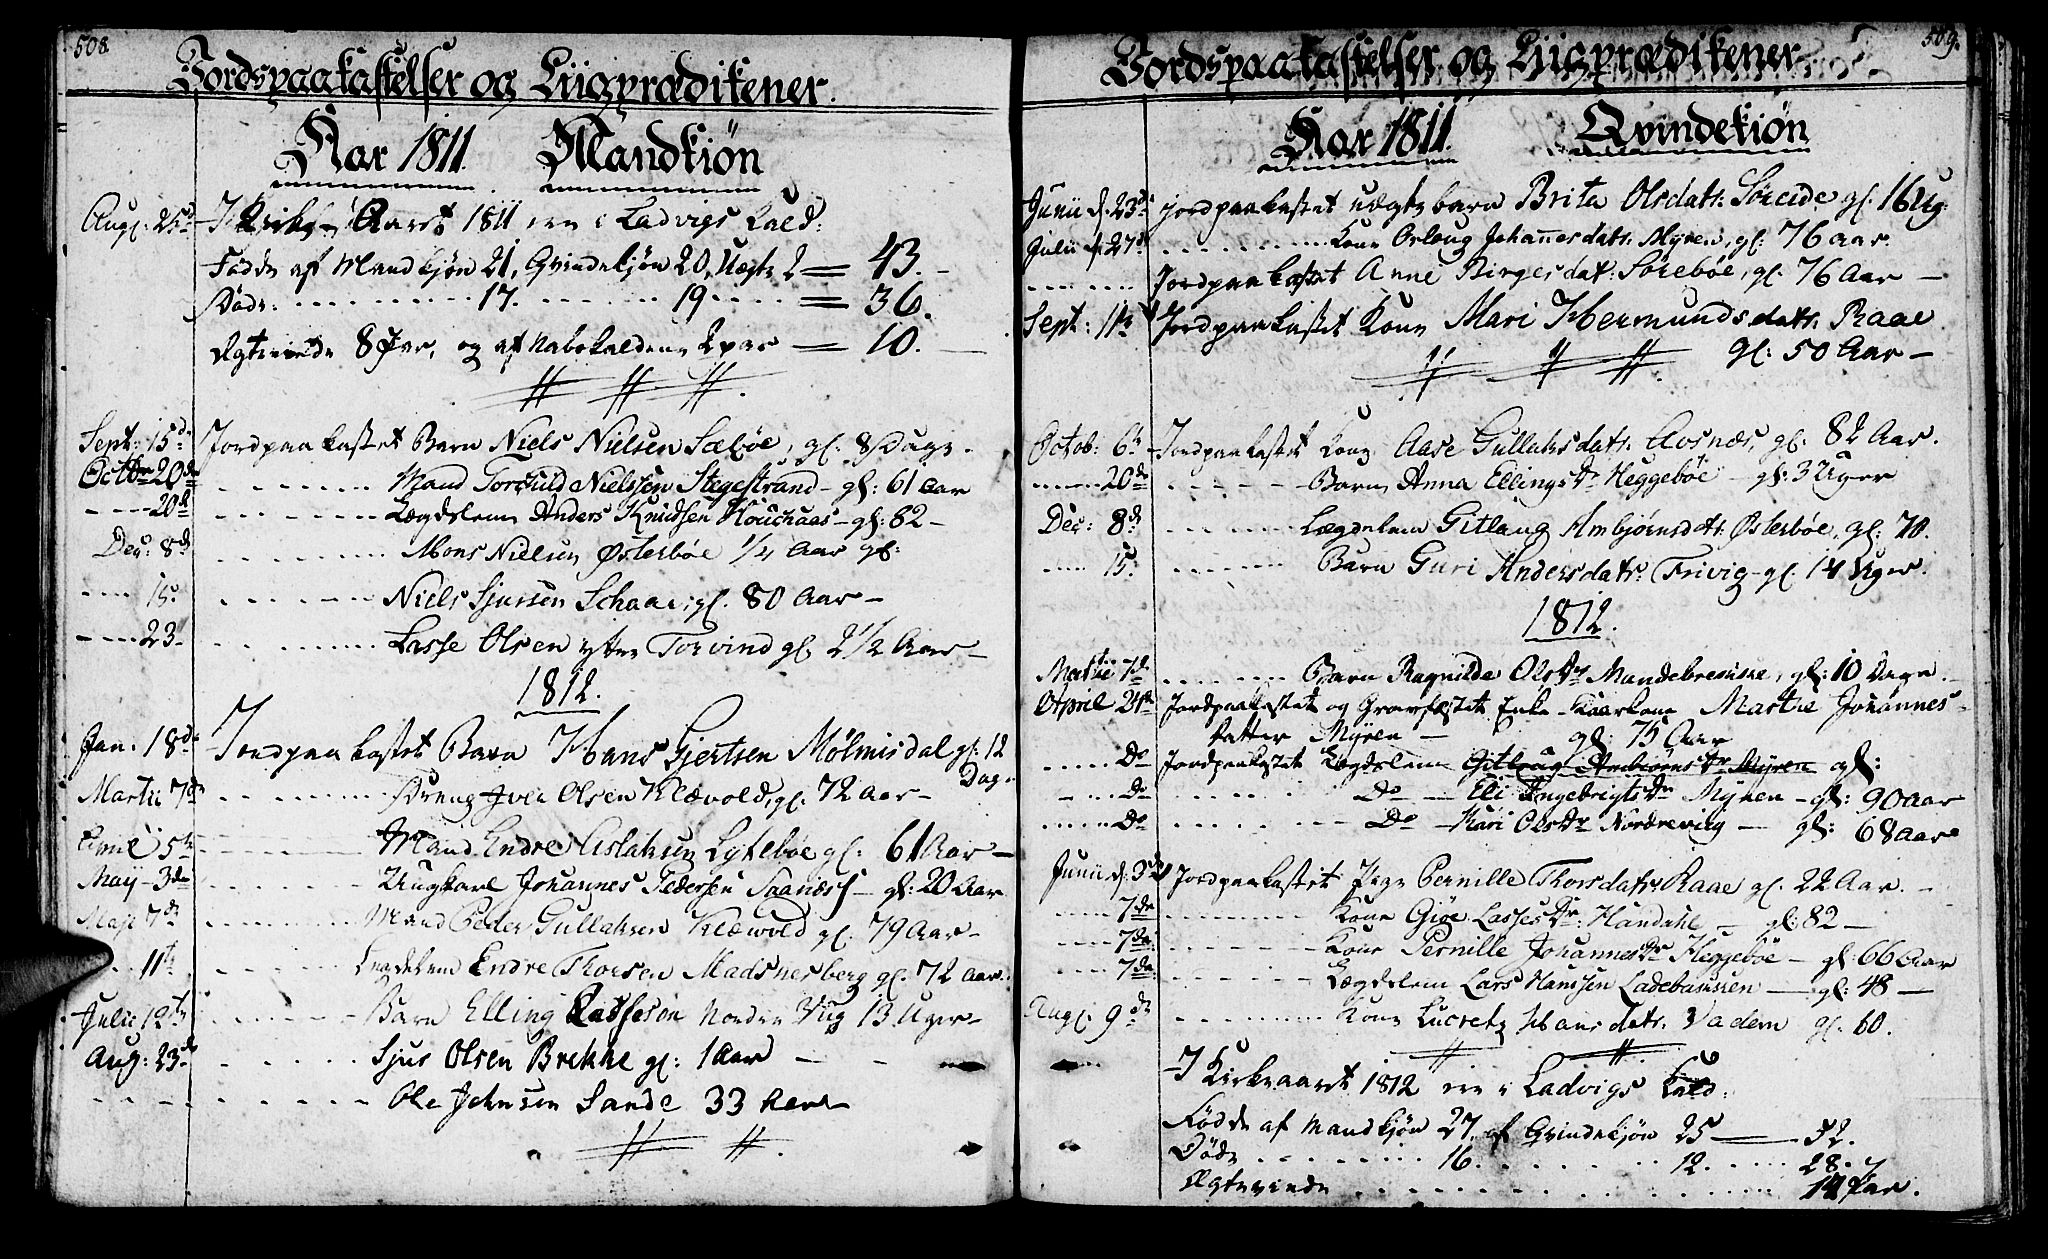 508.
Jordspaakastelser og Liigprædikener.
Aar 1811. Mandkiøn
Aug. 25de I Kirke Aaret 1811 ere i Ladvigs Kald:
Fødde af Mandkjøn 21, Qvindekjøn 20, Uægte 2 = 43.
Døde: 17. 19 = 36.
Ægteviede 8 Par, og af Nabokaldene 2 par = 10.
Sept: 15de Jordpaakastet Barn Niels Nielsen Sæbøe, gl: 8 Dage.
Octbr 20de Mand Torchild Nielssen Stegestrand gl: 61 Aar
20de Lægdslem Anders Knudsen Houchaas gl: 82
Dec: 8de Mons Nielsen Østerbøe 1/4 Aar gl:
15. Niels Sjursen Schaar, gl. 80 Aar
23 Lasse Olsen ytter Torvind gl. 2 1/2 Aar
1812.
Jan: 18de Jordpaakastet Barn Hans Gjertsen Mølmisdal gl: 12
Dage
Martii 7de Dreng Iver Olsen Klævold, gl. 72 Aar
April 5te Mand Endre Aslaksen Lykebøe gl. 61 Aar
May 3de Ungkarl Johannes Pedersen Saanæss gl: 20 Aar
Maji 7de Mand Peder Gullaksen Klævold gl. 79 Aar
11te Legdslem Endre Thorsen Madsnesberg gl. 72 Aar.
Julii 12te Barn Elling Lasseson Nordre Vüg 13 Uger
Aug: 23de Sjur Olsen Brekke gl: 1 Aar
Ole Johnsen Sande 33 Aar
509.
Jordspaakastelser og Liigprædikener
Aar 1811. Qvindekiøn
Junii d. 23de Jordpaakastet uægte barn Brita Olsdatr: Søreide gl. 16 Ug:
Julii d. 27de Kone Orloug Johannesdatr. Myren, gl: 76 Aar.
Jordpaakastet Anne Birgesdat: Sørebøe, gl. 76 Aar
Sept: 11te Jordpaakastet Kone Mari Hermundsdatr. Raae
gl: 50 Aar
Octob: 6te Jordpaakastet Kone Aase Gullaksdatr. Avsnæs, gl: 82 Aar.
20de Barn Anna Ellingsdr Heggebøe gl: 3 Uger
Dec: 8de Lægdslem Gitlaug Ambjørnsdatr. Østerbøe, gl: 70.
15. Barn Guri Andersdatr: Trivig gl. 14 Uger.
1812.
Martii 7de Barn Ragnilde Olsdr Mandebresiske, gl: 10 Dage
April 21de Jordpaakastet og Gravfæstet Enke Kaarkone Marthe Johannes-
datter Myren gl: 75 Aar
Do Jordpaakastet Legdslem Gitloug Ambiørnsdr Myren gl:
Do Do Eli Ingebrigtsdr Myren gl: 90 Aar
Do Do Kari Olsdr Nordrevieg gl: 68 Aar
Junii d: 3de Jordpaakastet Pige Pernille Thorsdatr. Raae gl. 22 Aar.
7de Kone Giøe Lassesdr: Handahl gl: 82
7de Kone Pernille Johannesdr Heggebøe gl: 66 Aar
7de Lægdslem Lars Hanssen Ladebaussen gl: 48
Aug. 9de Kone Lucretz Hansdatr. Vadem gl. 60.
I Kirkeaaret 1812 ere i Ladvigs Kald:
Fødde af Mandkjøn 27 af Qvindekjøn 25 52.
Døde 16. 12. 28.
Ægteviede 14 Par.